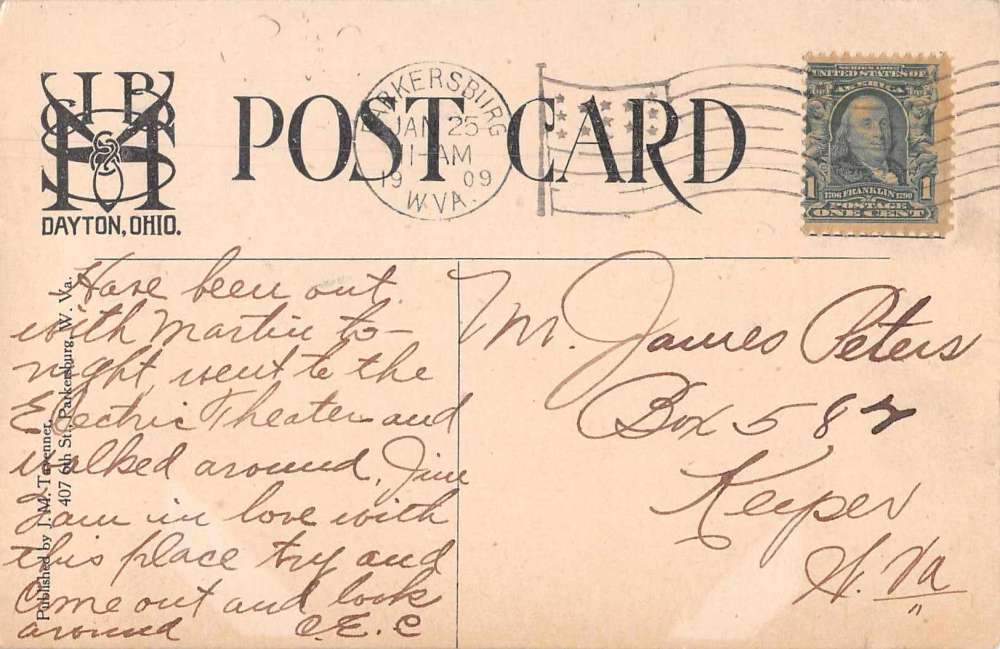 DAYTON, OHIO.
POST CARD
PARKERSBURG
JAN 25
1-AM
19 09
W.VA.
SERIES 1902
UNITED STATES OF
AMERICA
1 1
1706 FRANKLIN 1790
POSTAGE
ONE CENT
Published by J. M. Tavenner,
407 6th St., Parkersburg, W. Va.
Have been out
with Martin to-
night, went to the
Electric Theater and
walked around, Jim
I am in love with
this place try and
Come out and look
around C. E. C
Mr. James Peters
Box 582
Keyser
W. Va